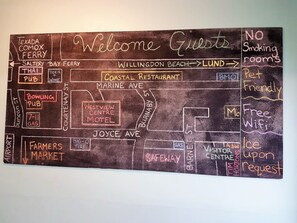 TEXADA
COMOX
FERRY
Welcome Guests
NO
Smoking
rooms
SALTERY BAY FERRY
WILLINGDON BEACH
LUND
THAI
PUB
COASTAL RESTAURANT
Pet
Friendly
MARINE AVE
BOWLING
PUB
COURTENAY ST
WESTVIEW
CENTRE
MOTEL
BURNABY
Mc
Free
WiFi
JOYCE AVE
AIRPORT
FARMERS
MARKET
SAFEWAY
BARNE ST
VISITOR
CENTRE
Ice
upon
request